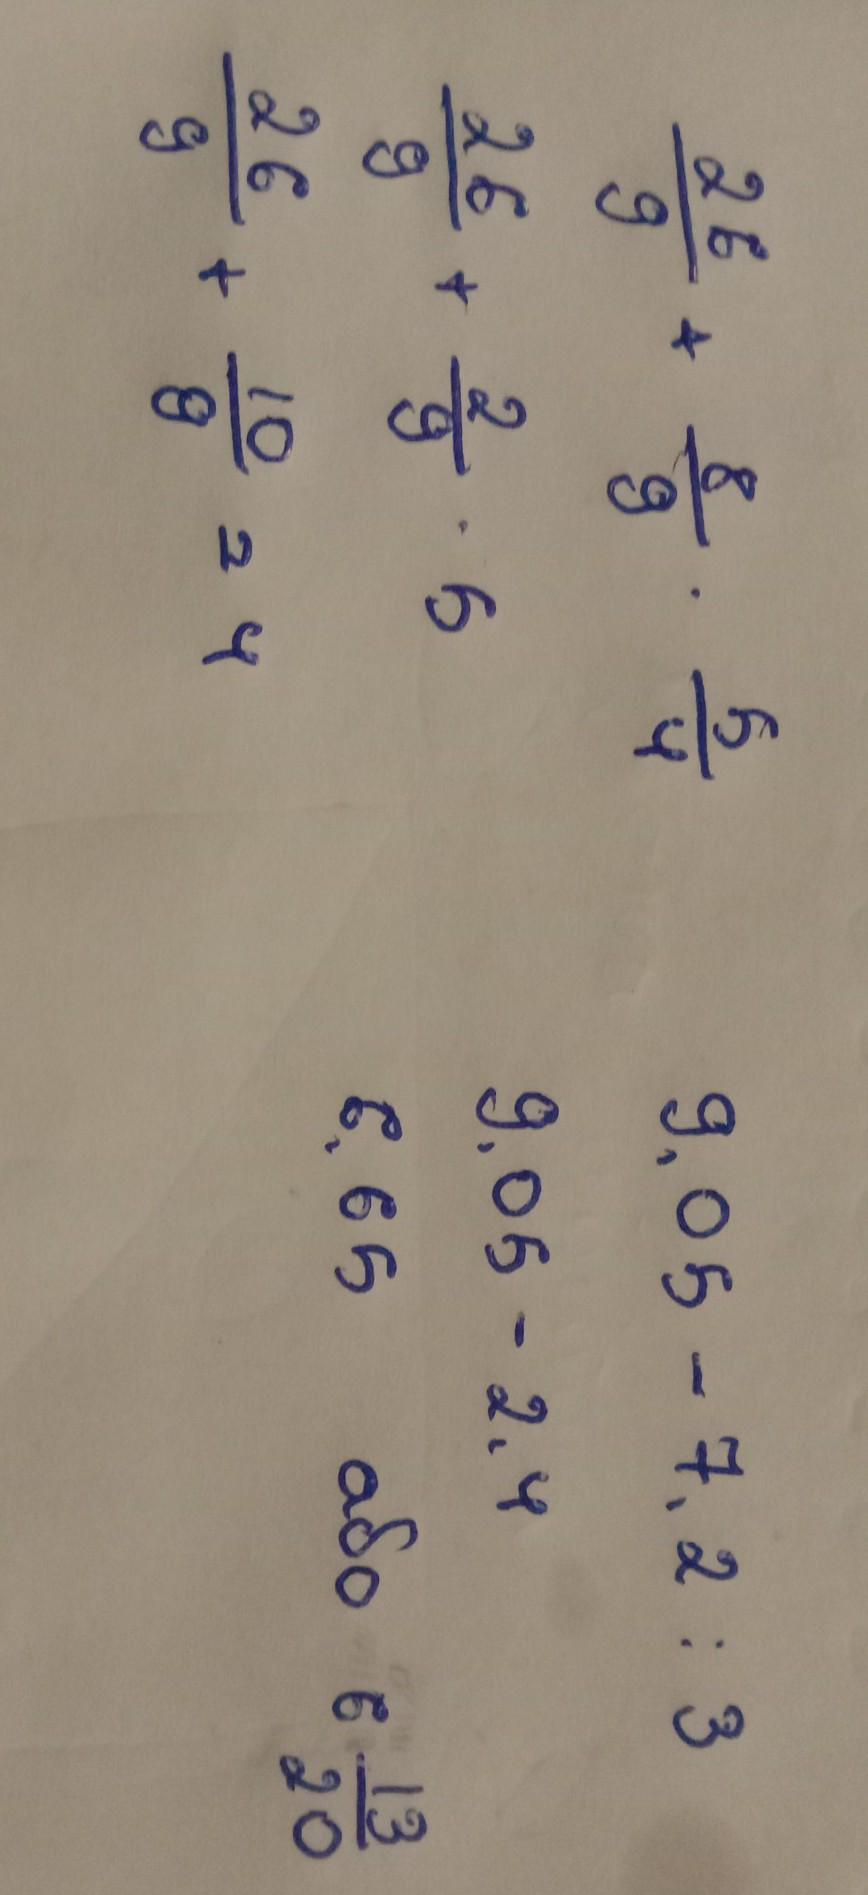 26/9 + 8/9 · 5/4
26/9 + 2/9 · 5
26/9 + 10/9 = 4
9,05 - 7,2 : 3
9,05 - 2,4
6,65 або 6 13/20